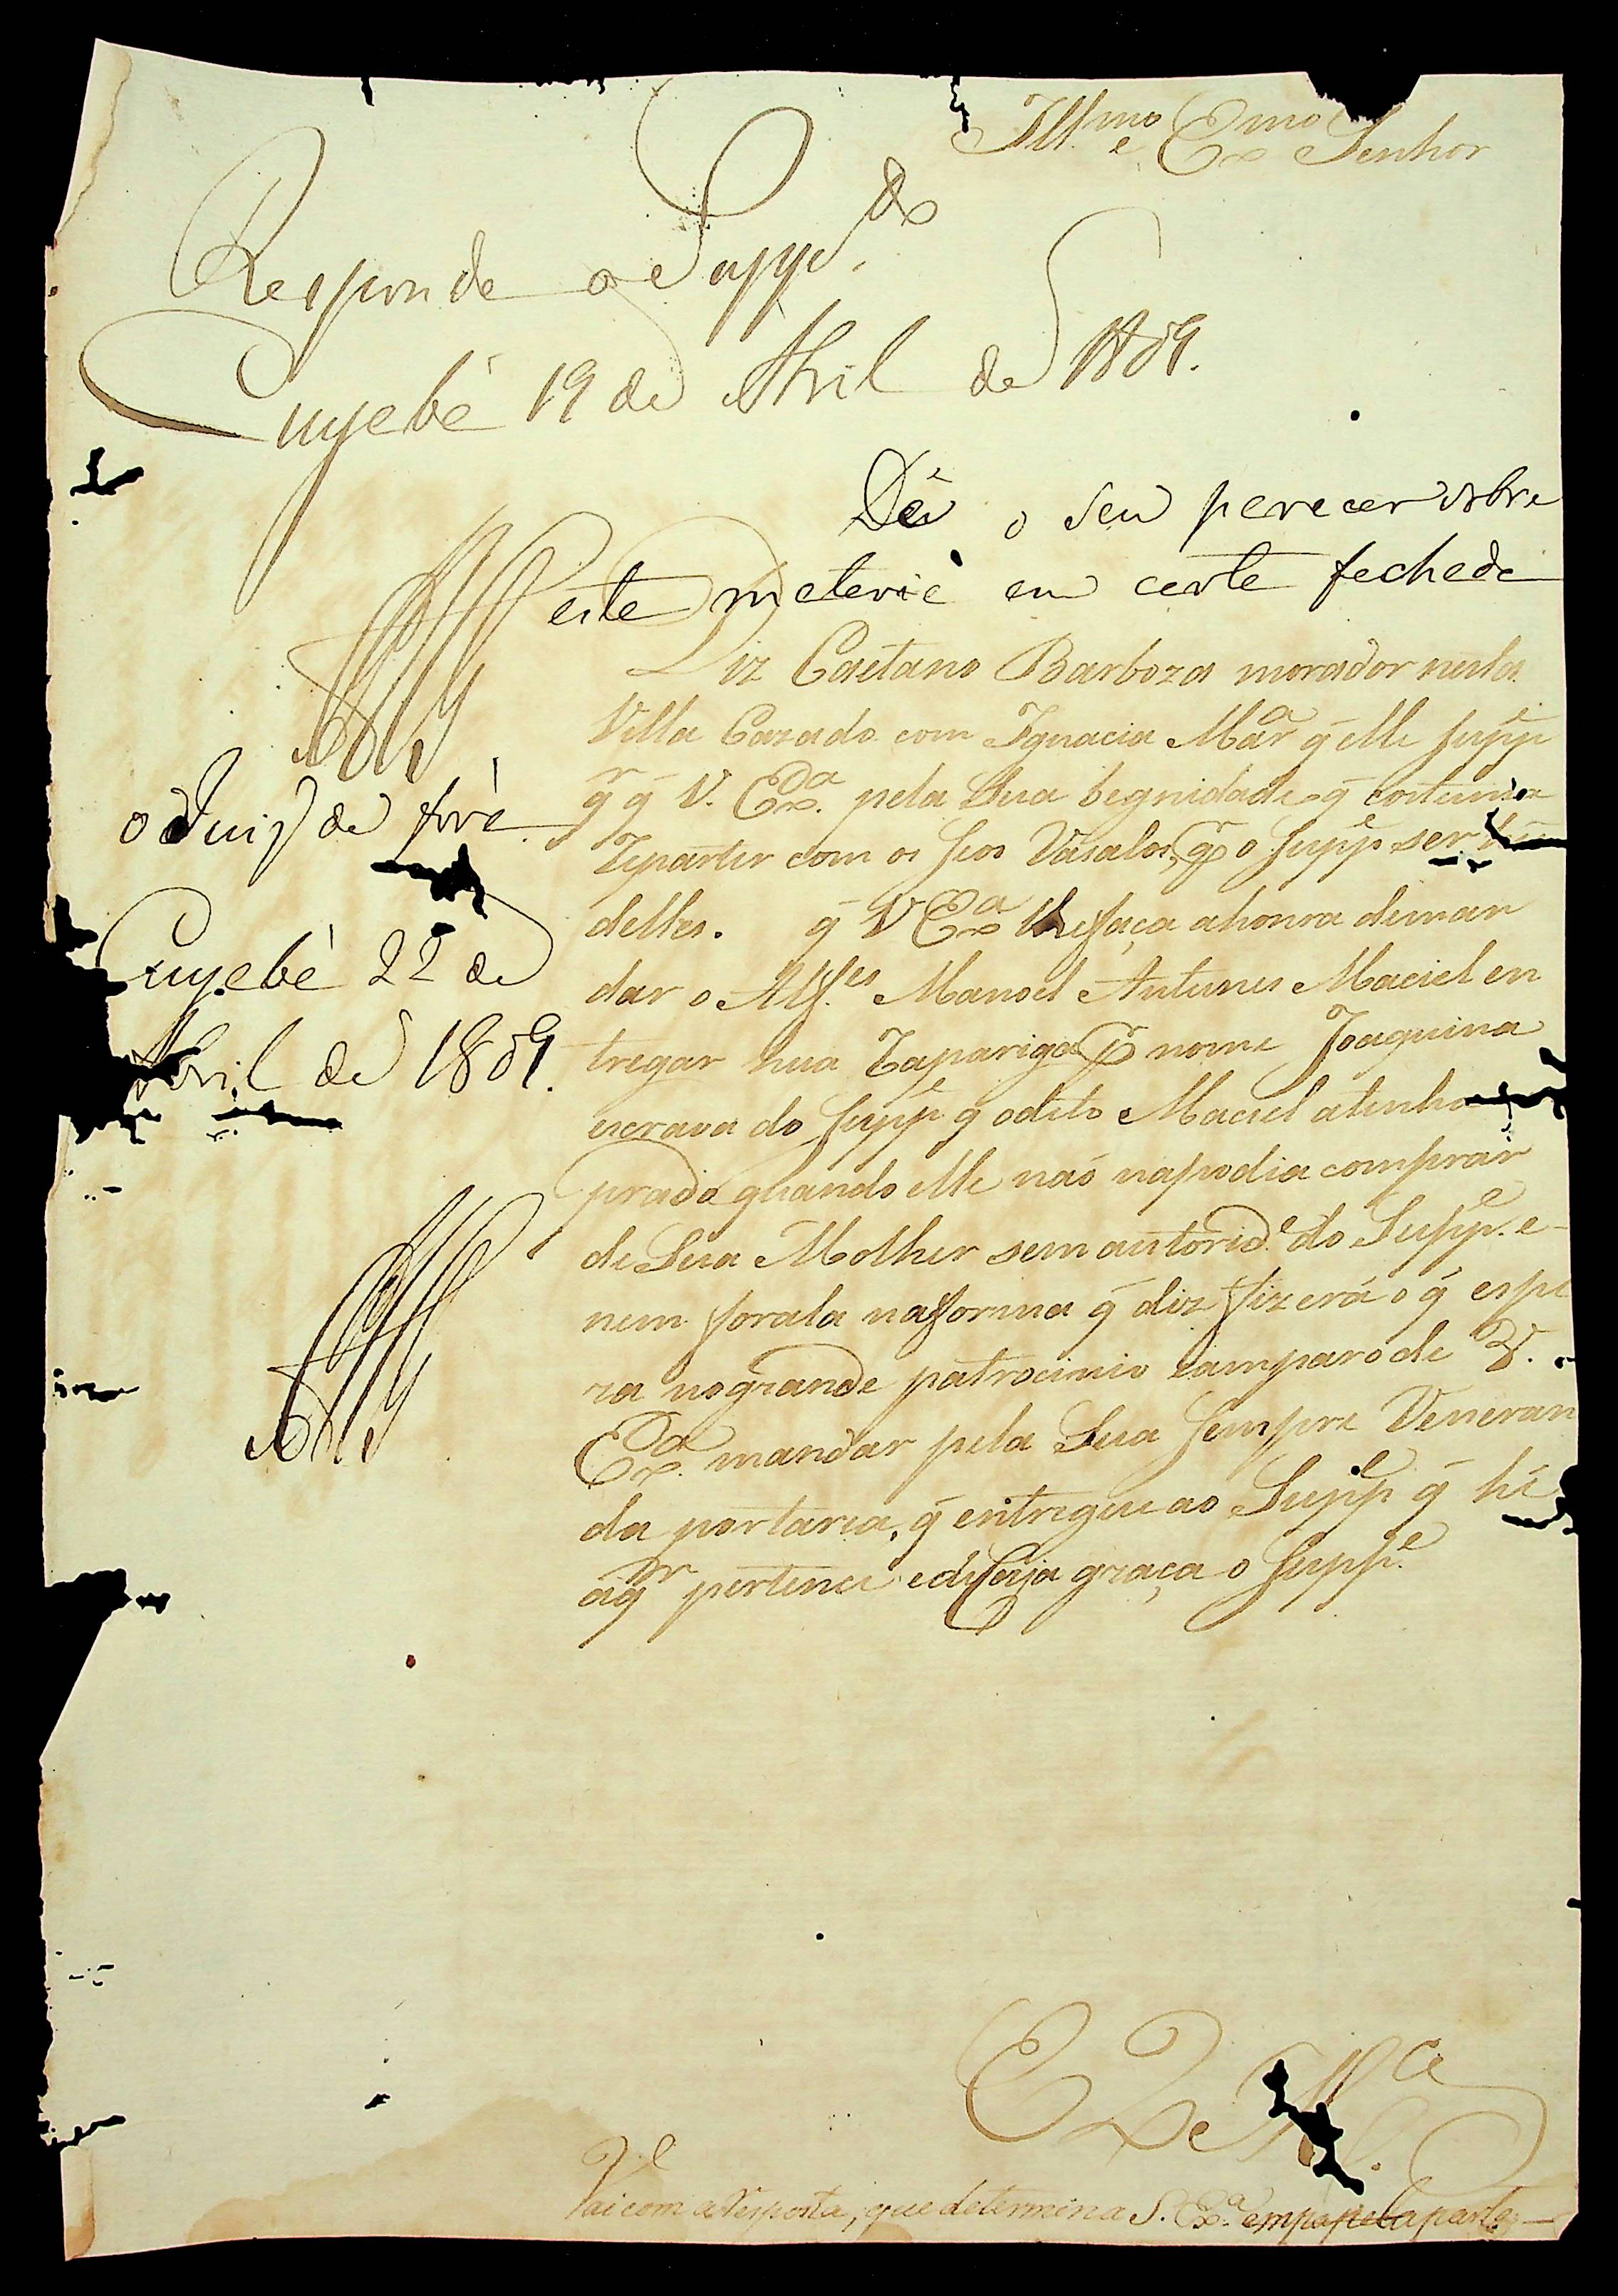 Ill.mo e Ex.mo Senhor
Responde o Supp.do
Cuyabá 19 de Abril de 1809.
Dê o seu parecer sobre
esta materia em carta fechada
o Juiz de fóra.
Cuyabá 22 de
Abril de 1809.
Diz Caetano Barboza morador nesta
Villa Cazado com Ignacia Mar.a q̃ elle Supp.e
q.r q̃ V. Ex.a pela Sua begnidade q̃ costuma
Repartir com os seos Vasalos, p.r o Supp.e ser hũ
delles. q̃ V Ex.a lhe faça a honra de man
dar o Alf.es Manoel Antunes Maciel en
tregar hua Rapariga p.r nome Joaquina
escrava do Supp.e q̃ o dito Maciel a tinha
prado quando elle naõ na podia comprar
de Sua Molher sem autorid.e do Supp.e e
nem forala na forma q̃ diz fizerá o q̃ espe
ra no grande patrocinio e amparo de V.
Ex.a mandar pela Sua Sempre Veneran
da portaria, q̃ entregue ao Supp.e q̃ hé
a q.m pertence e de cuja graça o Supp.e
E R M.ce
Vai com a resposta, que determina S. Ex.a em papel a parte